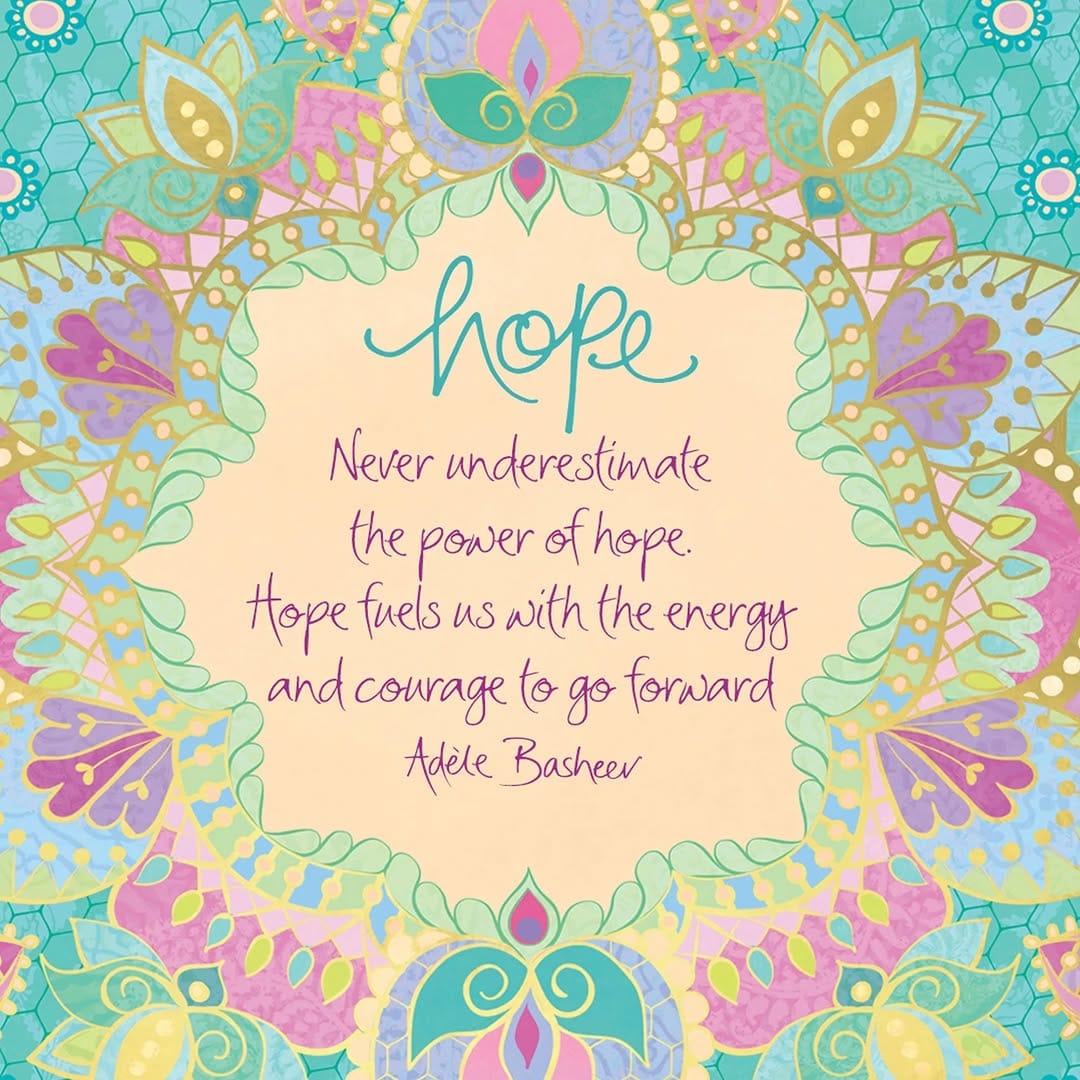 hope
Never underestimate
the power of hope.
Hope fuels us with the energy
and courage to go forward
Adèle Basheer